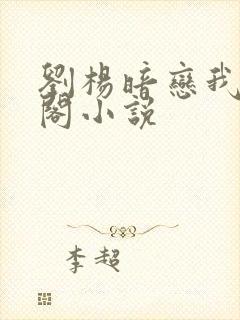 劉楊暗戀我
閣小説
李超